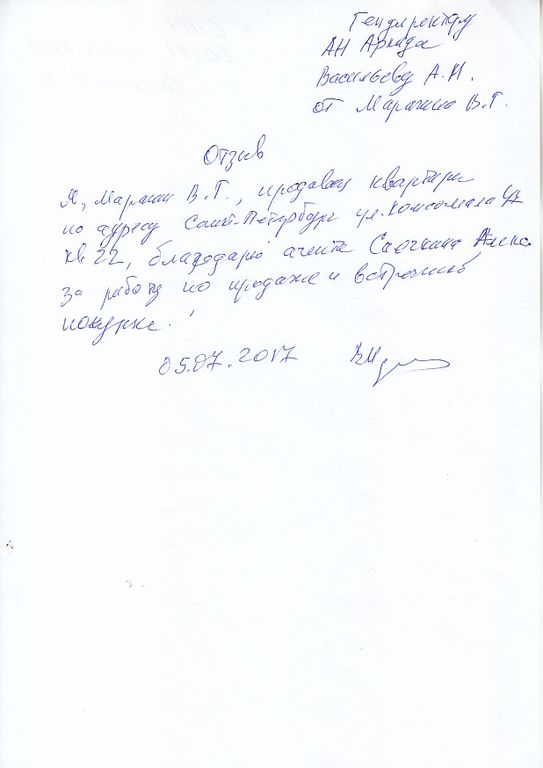 Гендиректору
АН Аркада
Васильеву А.Н.
от Марагино В.Г.
Отзыв
Я, Марагин В.Г., продавец квартиры
по адресу Санкт-Петербург ул. Комсомола
кв 22, благодарю агента Алекс.
за работу по продаже и встречной
покупке!
05.07.2017